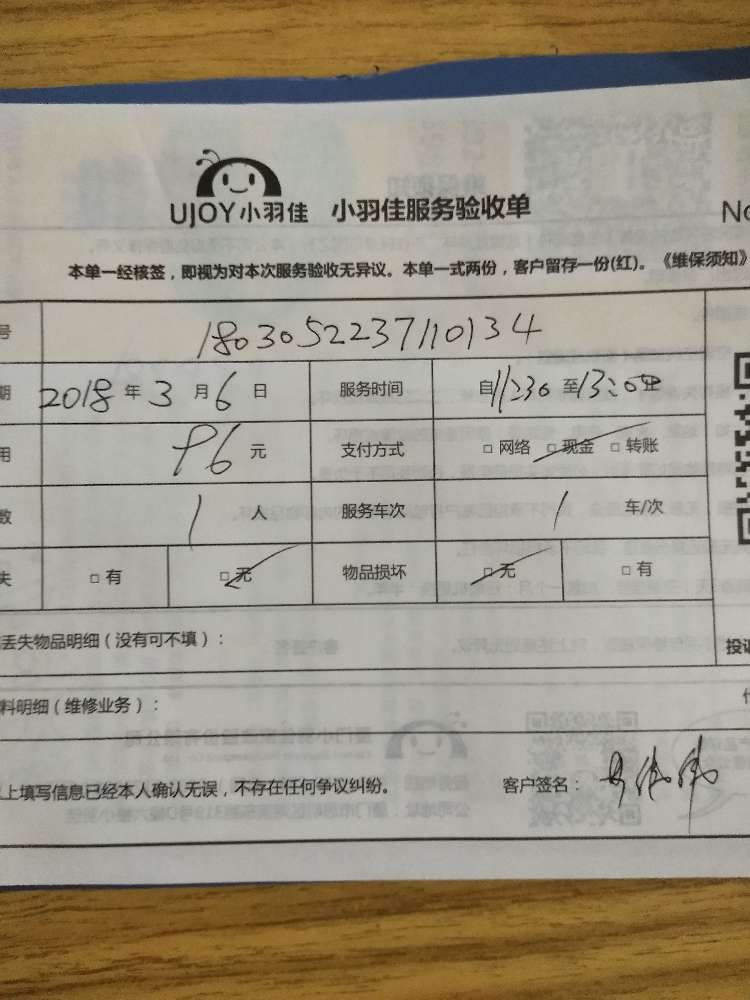 UJOY小羽佳 小羽佳服务验收单 No
本单一经核签，即视为对本次服务验收无异议。本单一式两份，客户留存一份(红)。《维保须知》
号 1803052237110134
期 2018 年 3 月 6 日 服务时间 自 11:30 至 13:04
用 96 元 支付方式 □ 网络 □ 现金 □ 转账
数 1 人 服务车次 1 车/次
失 □ 有 □ 无 物品损坏 □ 无 □ 有
丢失物品明细（没有可不填）：
投诉
料明细（维修业务）：
上填写信息已经本人确认无误，不存在任何争议纠纷。 客户签名：